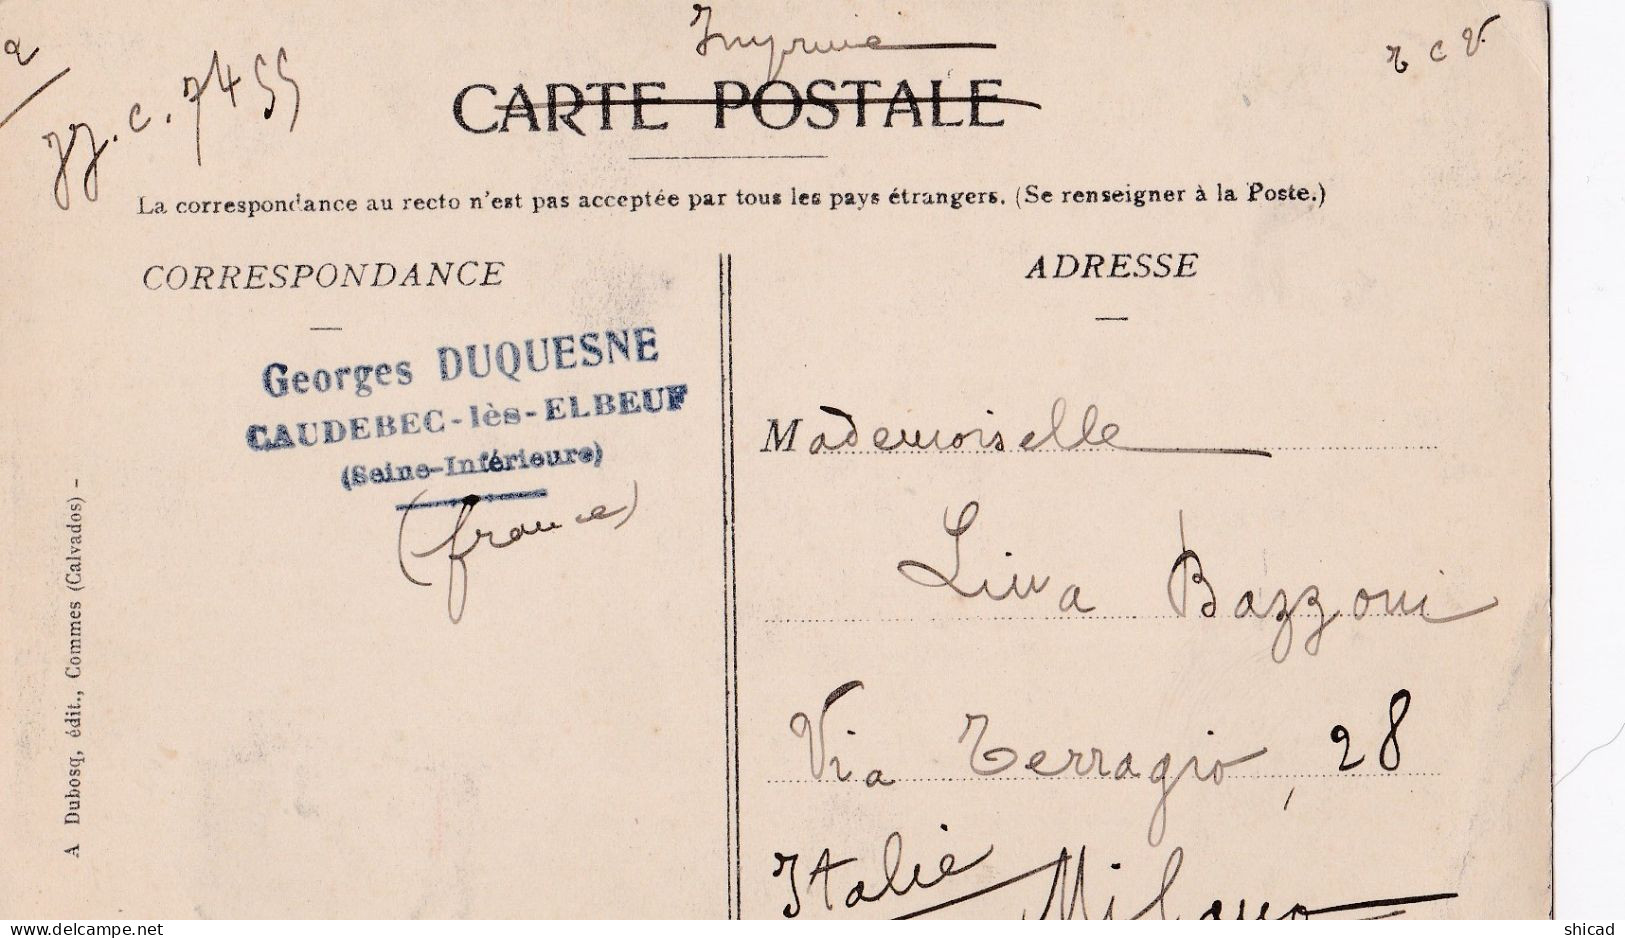 Imprimé
T C V
J J. C. 7455
CARTE POSTALE
La correspondance au recto n'est pas acceptée par tous les pays étrangers. (Se renseigner à la Poste.)
CORRESPONDANCE
Georges DUQUESNE
CAUDEBEC-lès-ELBEUF
(Seine-Inférieure)
(france)
A Dubosq, édit., Commes (Calvados) -
ADRESSE
Mademoiselle
Lina Bazzoni
Via Terragio, 28
Italie Milano
shicad